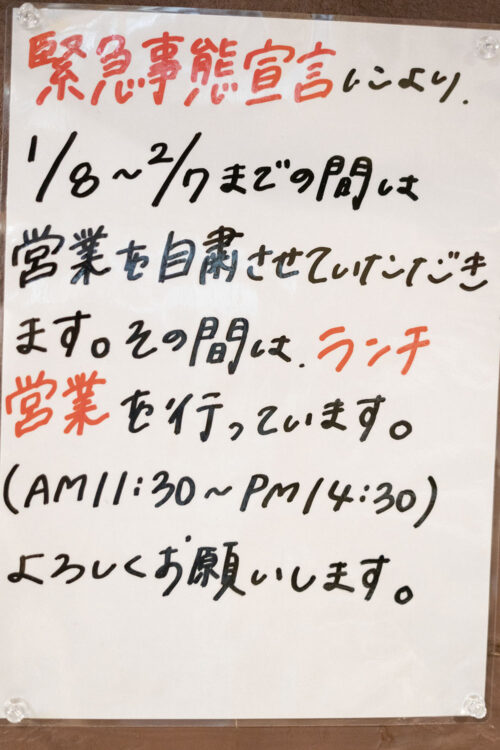 緊急事態宣言により.
1/8～2/7までの間は
営業を自粛させていただき
ます。その間は.ランチ
営業を行っています。
(AM11:30～PM14:30)
よろしくお願いします。